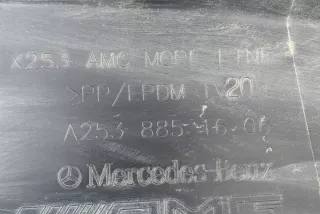 X253 AMG MOPF LINE
>PP/EPDM TV20
A253 885 16 06
Mercedes-Benz